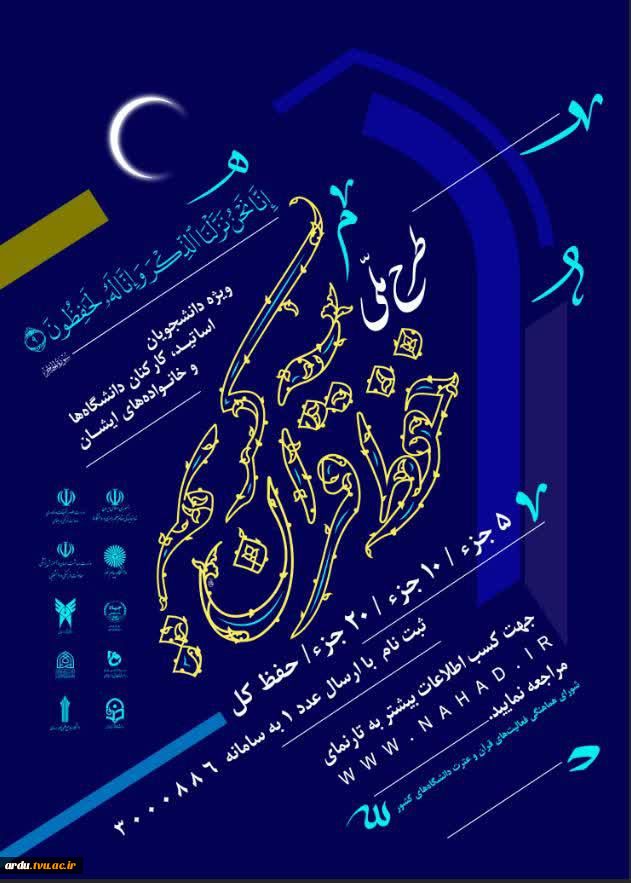 إِنَّا نَحْنُ نَزَّلْنَا الذِّكْرَ وَإِنَّا لَهُ لَحَافِظُونَ
۹
طرح ملّی
حفظ قرآن کریم
ویژه دانشجویان
اساتید، کارکنان دانشگاه‌ها
و خانواده‌های ایشان
۵ جزء / ۱۰ جزء / ۲۰ جزء / حفظ کل
ثبت نام با ارسال عدد ۱ به سامانه ۳۰۰۰۸۸۶
جهت کسب اطلاعات بیشتر به تارنمای
WWW.NAHAD.IR
مراجعه نمایید.
شورای هماهنگی فعالیت‌های قرآن و عترت دانشگاه‌های کشور
ardu.tvu.ac.ir